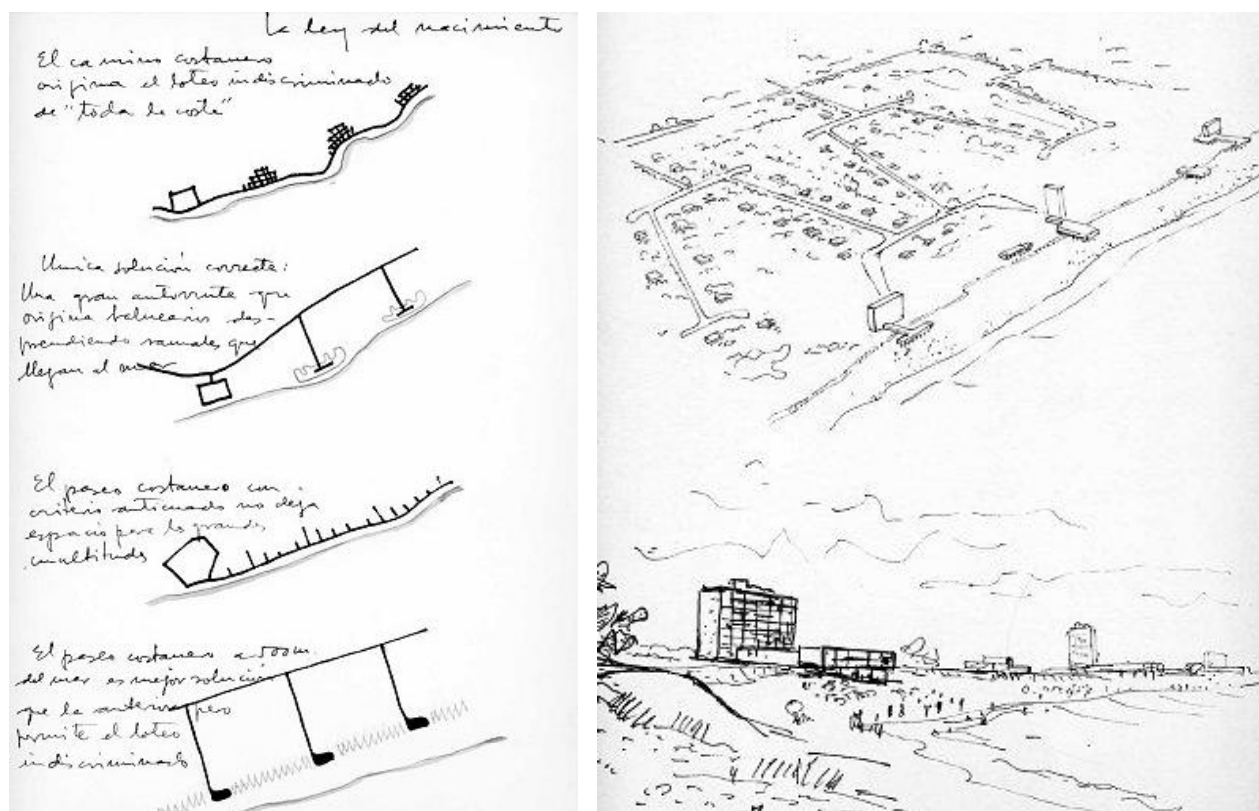 La ley del nacimiento
El camino costanero
origina el loteo indiscriminado
de "toda la costa"
Unica solución correcta:
Una gran autorruta que
origina balnearios des-
prendiendo ramales que
llegan al mar
El paseo costanero con
criterio anticuado no deja
espacio para las grandes
multitudes
El paseo costanero a 700 m.
del mar es mejor solución
que la anterior pero
permite el loteo
indiscriminado